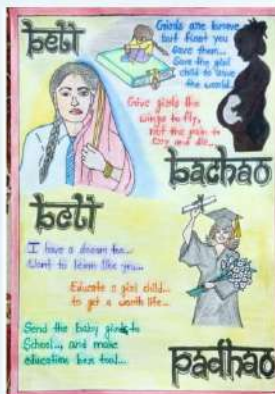 beti
Girls are brave
but first you
Save them...
Save the girl
child to save
the world..
Give girls the
wings to fly,
not the pain to
cry and die...
bachao
beti
I have a dream too...
Want to learn like you...
Educate a girl child...
to get a worth life...
Send the baby girls to
School..., and make
education her tool...
padhao